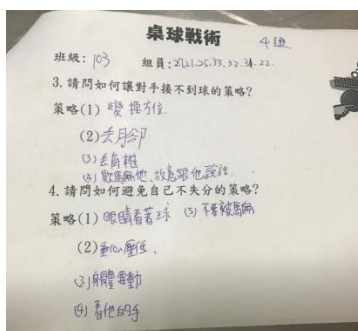 桌球戰術
4組
班級:103 組員:21.25.33.32.34.22.
3.請問如何讓對手接不到球的策略?
策略(1)變換方位.
(2)丟腳
(3)丟角樁
(4)欺騙他、故意跟他說話.
4.請問如何避免自己不失分的策略?
策略(1)眼睛看著球 (5)不要被騙
(2)重心壓低、
(3)身體要動
(4)看他的手